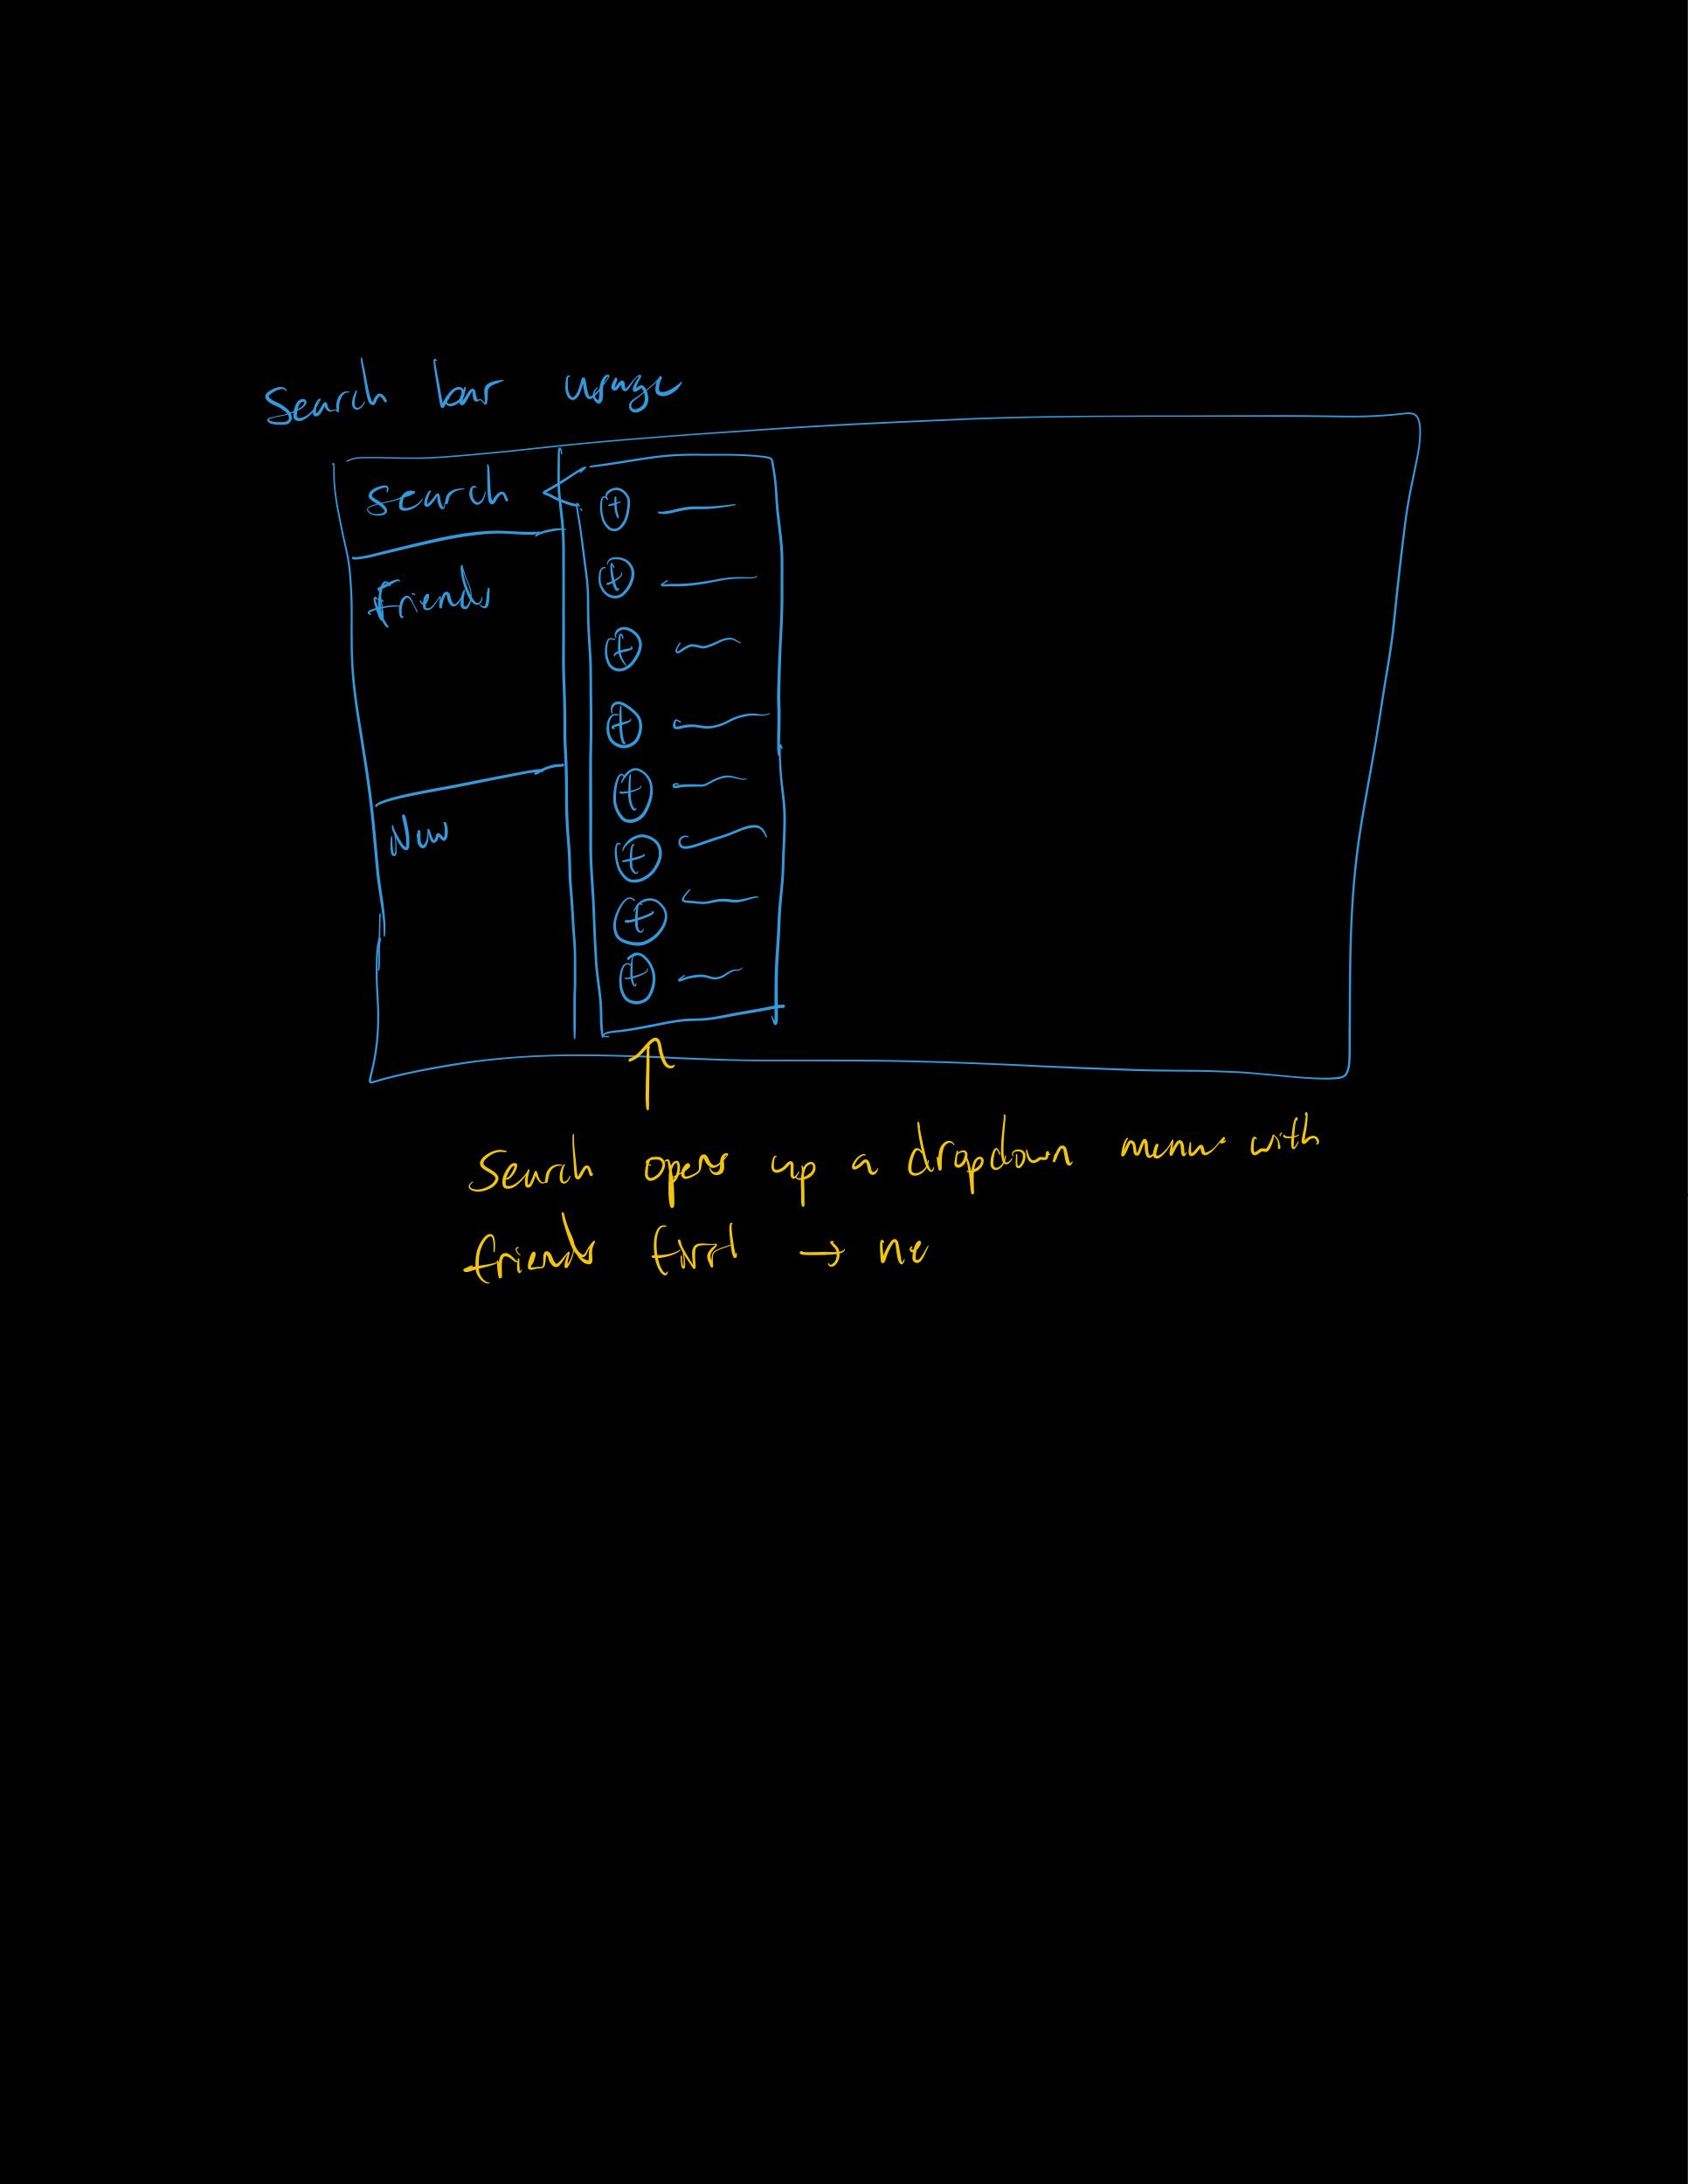 Search bar usage
Search
Friends
New
+
+
+
+
+
+
+
+
Search opens up a dropdown menu with
friends first → ne